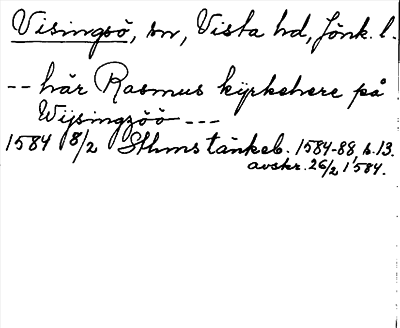 Visingsö, sn, Vista hd, Jönk. l.
-- här Rasmus kyrkehere på
Wijsingzöö ---
1584 8/2 Sthms tänkeb. 1584-88, s. 13.
avskr. 26/2 1584.